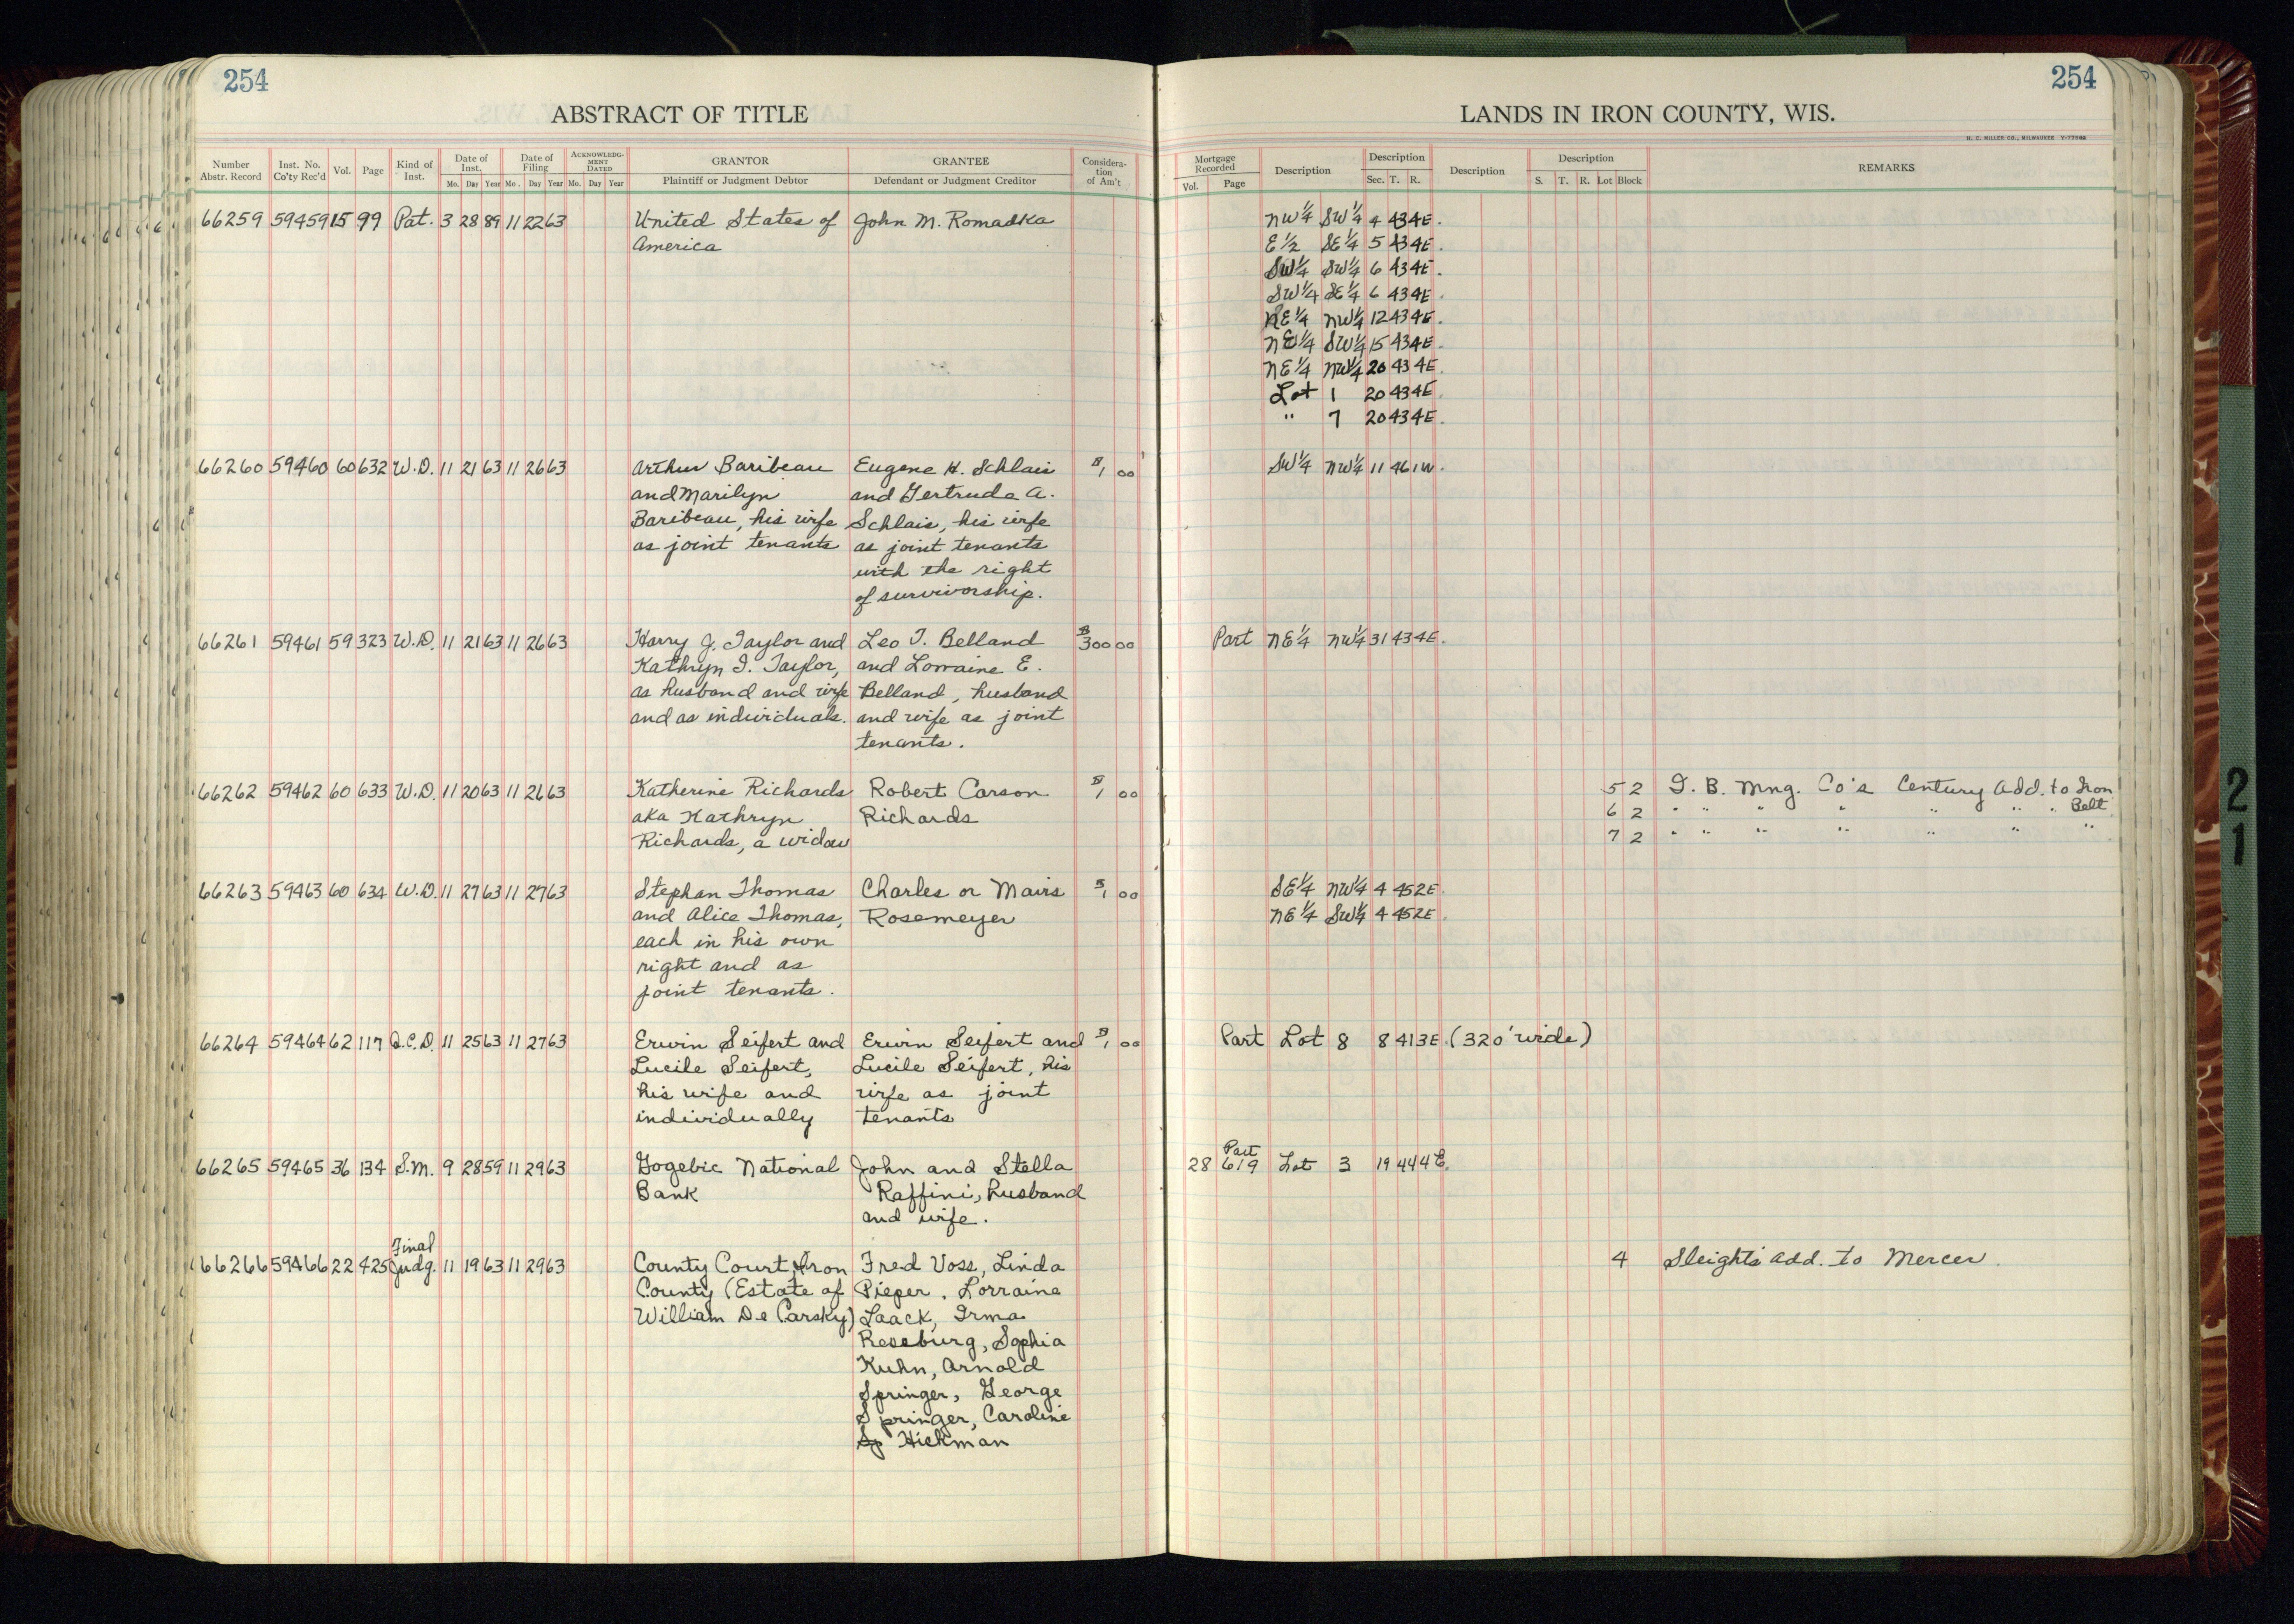 254
ABSTRACT OF TITLE
Number Abstr. Record Inst. No. Co'ty Rec'd Vol. Page Kind of Inst. Date of Inst. Date of Filing ACKNOWLEDGMENT DATED GRANTOR GRANTEE Consideration of Am't
Mo. Day Year Mo. Day Year Mo. Day Year Plaintiff or Judgment Debtor Defendant or Judgment Creditor
66259 59459 15 99 Pat. 3 28 89 11 22 63 United States of John M. Romadka
America
66260 59460 60 632 W.D. 11 21 63 11 26 63 Arthur Baribeau Eugene H. Schlais $1 00
and Marilyn and Gertrude A.
Baribeau, his wife Schlais, his wife
as joint tenants as joint tenants
with the right
of survivorship.
66261 59461 59 323 W.D. 11 21 63 11 26 63 Harry J. Taylor and Leo T. Belland $300 00
Kathryn I. Taylor, and Lorraine E.
as husband and wife Belland, husband
and as individuals. and wife as joint
tenants.
66262 59462 60 633 W.D. 11 20 63 11 26 63 Katherine Richards Robert Carson $1 00
aka Kathryn Richards
Richards, a widow
66263 59463 60 634 W.D. 11 27 63 11 27 63 Stephan Thomas Charles or Mairs $1 00
and Alice Thomas, Rosemeyer
each in his own
right and as
joint tenants.
66264 59464 62 117 Q.C.D. 11 25 63 11 27 63 Erwin Seifert and Erwin Seifert and $1 00
Lucile Seifert, Lucile Seifert, his
his wife and wife as joint
individually tenants
66265 59465 36 134 S.M. 9 28 59 11 29 63 Gogebic National John and Stella
Bank Raffini, husband
and wife.
Final
66266 59466 22 425 Judg. 11 19 63 11 29 63 County Court, Iron Fred Voss, Linda
County (Estate of Pieper, Lorraine
William De Carsky) Laack, Irma
Roseburg, Sophia
Kuhn, Arnold
Springer, George
Springer, Caroline
Sp Hickman
254
LANDS IN IRON COUNTY, WIS.
H. C. MILLER CO., MILWAUKEE
Mortgage Recorded Description Description Description Description REMARKS
Vol. Page Sec. T. R. S. T. R. Lot Block
NW¼ SW¼ 4 43 4E.
E½ SE¼ 5 43 4E.
SW¼ SW¼ 6 43 4E.
SW¼ SE¼ 6 43 4E.
NE¼ NW¼ 12 43 4E.
NE¼ SW¼ 15 43 4E.
NE¼ NW¼ 20 43 4E.
Lot 1 20 43 4E.
" 7 20 43 4E.
SW¼ NW¼ 11 46 1W.
Part NE¼ NW¼ 31 43 4E.
5 2 I. B. Mng. Co's Century Add. to Iron
6 2 " " " " " " " Belt
7 2 " " " " " " "
SE¼ NW¼ 4 45 2E.
NE¼ SW¼ 4 45 2E.
Part Lot 8 8 41 3E. (320' wide)
Part
28 619 Lot 3 19 44 4E.
4 Sleight's Add. to Mercer.
21